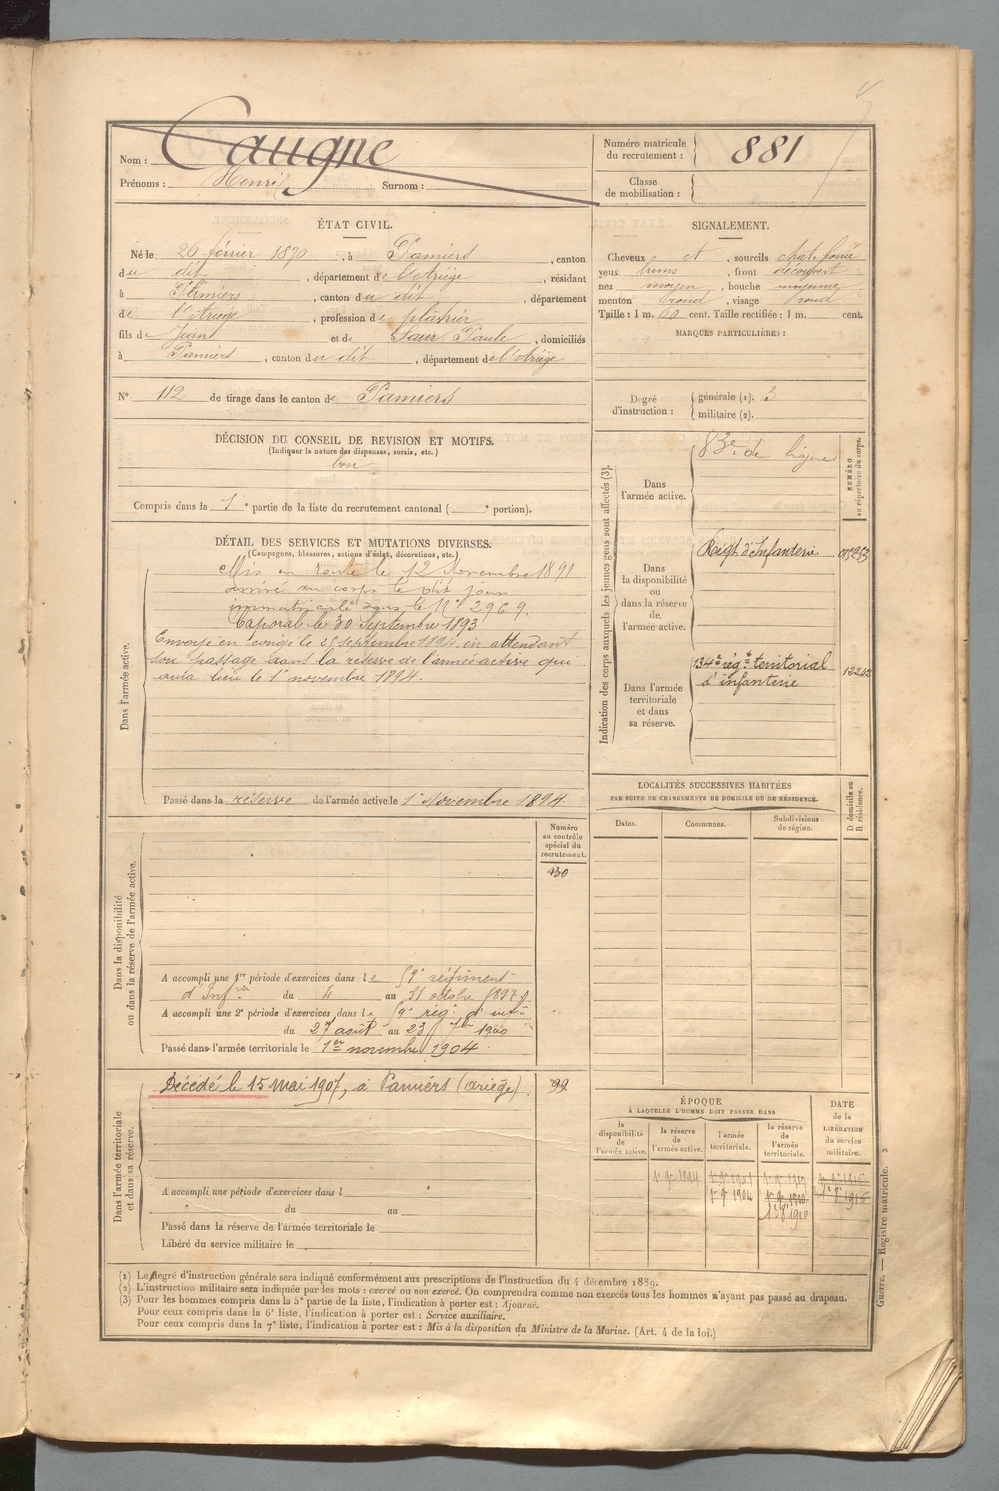 Nom : Caugne
Prénoms : Henri Surnom :
Numéro matricule du recrutement : 881
Classe de mobilisation :
ÉTAT CIVIL.
Né le 26 février 1870, à Pamiers, canton
du dit, département de l'Ariège, résidant
à Pamiers, canton du dit, département
de l'Ariège, profession de plâtrier
fils de Jean et de Saur Paule, domiciliés
à Pamiers, canton du dit, département de l'Ariège
N° 112 de tirage dans le canton de Pamiers
SIGNALEMENT.
Cheveux et, sourcils chat. foncé
yeux bruns, front découvert
nez moyen, bouche moyenne
menton rond, visage rond
Taille : 1 m. 60 cent. Taille rectifiée : 1 m. cent.
MARQUES PARTICULIÈRES :
Degré d'instruction : générale (1). 3
militaire (2).
DÉCISION DU CONSEIL DE REVISION ET MOTIFS.
(Indiquer la nature des dispenses, sursis, etc.)
bon
Compris dans la 1e partie de la liste du recrutement cantonal ( e portion).
DÉTAIL DES SERVICES ET MUTATIONS DIVERSES.
(Campagnes, blessures, actions d'éclat, décorations, etc.)
Dans l'armée active.
Mis en route le 12 Novembre 1891
arrivé au corps le dit jour
immatriculé sous le N° 2969.
Caporal le 30 Septembre 1893
Envoyé en congé le septembre 1894, en attendant
son passage dans la réserve de l'armée active qui
aura lieu le 1er novembre 1894.
Passé dans la réserve de l'armée active le 1er Novembre 1894
Indication des corps auxquels les jeunes gens sont affectés (3).
NUMÉRO au répertoire du corps.
Dans l'armée active.
83e de ligne
Dans la disponibilité ou dans la réserve de l'armée active.
Régt d'Infanterie
Dans l'armée territoriale et dans sa réserve.
134e régt territorial
d'infanterie
LOCALITÉS SUCCESSIVES HABITÉES
PAR SUITE DE CHANGEMENTS DE DOMICILE OU DE RÉSIDENCE.
Dates. Communes. Subdivisions de région. D domicile ou R résidence.
Dans la disponibilité ou dans la réserve de l'armée active.
Numéro au contrôle spécial du recrutement.
130
A accompli une 1re période d'exercices dans le 59e régiment
d'Infrie du 4 au 31 octobre 1897
A accompli une 2e période d'exercices dans le 59e rég. d'inf.
du 27 août au 23 7bre 1900
Passé dans l'armée territoriale le 1er novembre 1904
Dans l'armée territoriale et dans sa réserve.
Décédé le 15 mai 1907, à Pamiers (ariège). 99
A accompli une période d'exercices dans l
du au
Passé dans la réserve de l'armée territoriale le
Libéré du service militaire le
ÉPOQUE
À LAQUELLE L'HOMME DOIT PASSER DANS
la disponibilité de l'armée active.
la réserve de l'armée active.
l'armée territoriale.
la réserve de l'armée territoriale.
DATE de la LIBÉRATION du service militaire.
(1) Le degré d'instruction générale sera indiqué conformément aux prescriptions de l'instruction du 4 décembre 1889.
(2) L'instruction militaire sera indiquée par les mots : exercé ou non exercé. On comprendra comme non exercés tous les hommes n'ayant pas passé au drapeau.
(3) Pour les hommes compris dans la 5e partie de la liste, l'indication à porter est : Ajourné.
Pour ceux compris dans la 6e liste, l'indication à porter est : Service auxiliaire.
Pour ceux compris dans la 7e liste, l'indication à porter est : Mis à la disposition du Ministre de la Marine. (Art. 4 de la loi.)
Guerre. — Registre matricule. 2